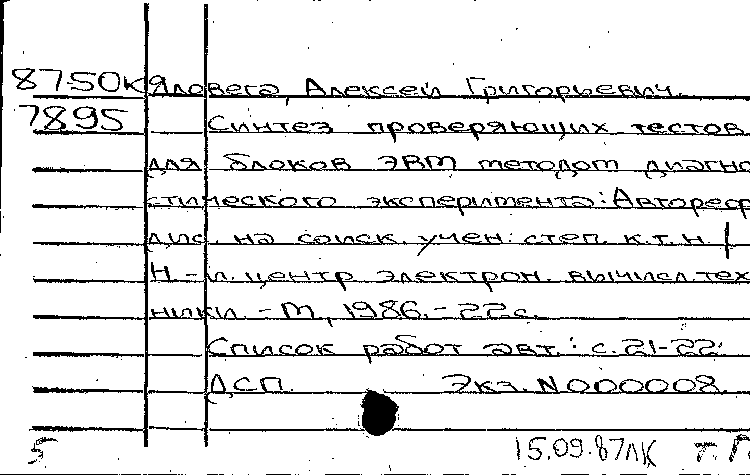 8750к Яловега, Алексей Григорьевич.
7895 Синтез проверяющих тестов
для блоков ЭВМ методом диагно
стического эксперимента: Автореф
дис. на соиск. учен. степ. к.т.н. |
Н.-и. центр электрон. вычисл. тех
ники. - М., 1986. - 22с.
Список работ авт.: с. 21-22.
ДСП. Экз. N 000008.
5 15.09.87лк т.П